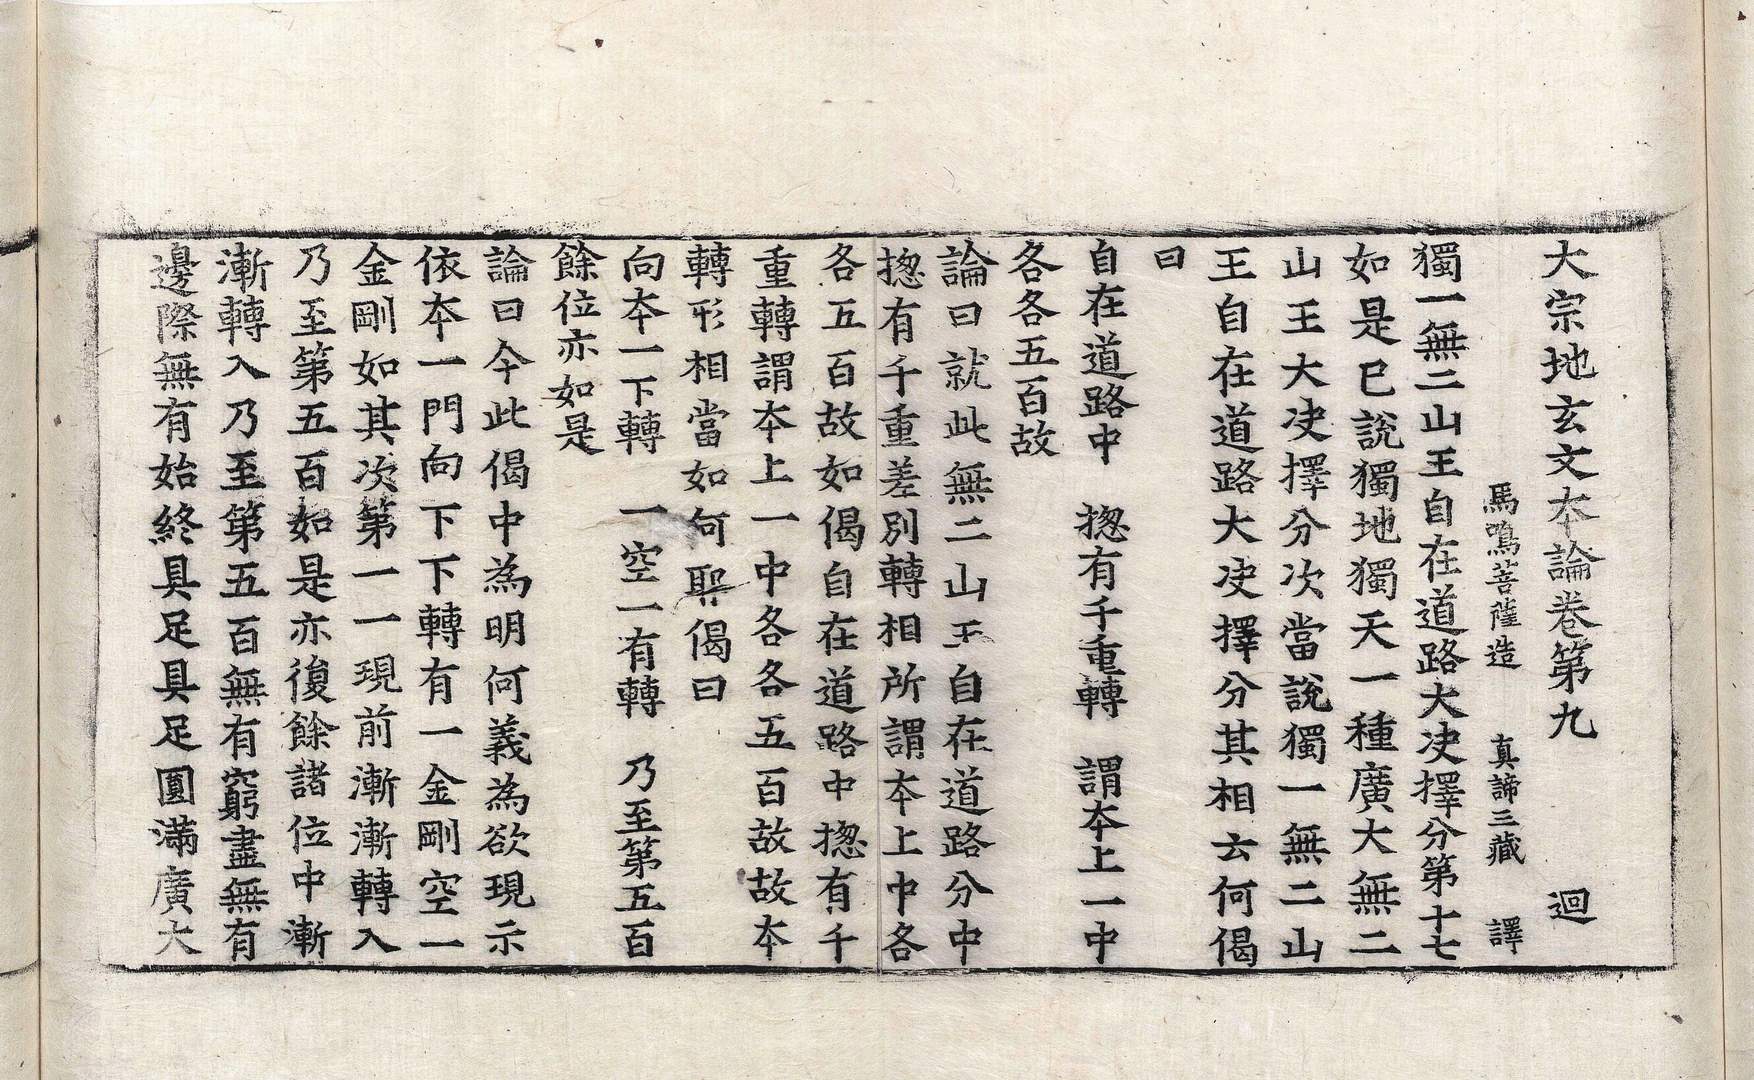 大宗地玄文夲論卷第九　迴
馬鳴菩薩造　真諦三藏　譯
獨一無二山王自在道路大决擇分第十七
如是已說獨地獨天一種廣大無二
山王大决擇分次當說獨一無二山
王自在道路大决擇分其相云何偈
曰
自在道路中　揔有千重轉　謂夲上一中
各各五百故
論曰就此無二山王自在道路分中
揔有千重差別轉相所謂夲上中各
各五百故如偈自在道路中揔有千
重轉謂夲上一中各各五百故故夲
轉形相當如何耶偈曰
向夲一下轉　一空一有轉　乃至第五百
餘位亦如是
論曰今此偈中為明何義為欲現示
依夲一門向下下轉有一金剛空一
金剛如其次第一一現前漸漸轉入
乃至第五百如是亦復餘諸位中漸
漸轉入乃至第五百無有窮盡無有
邊際無有始終具足具足圓滿廣大